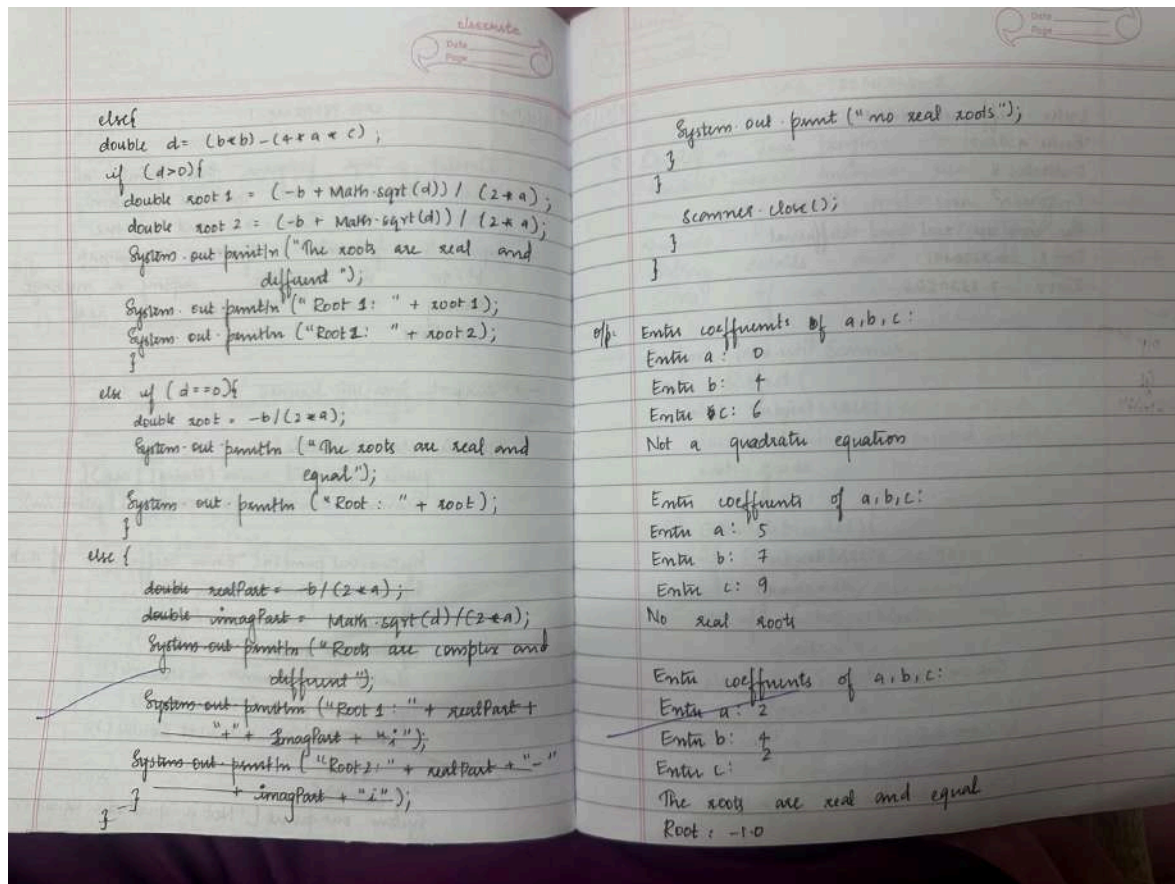 classmate
Date
Page
else{
double d= (b*b)-(4*a*c);
if (d>0){
double root1 = (-b + Math.sqrt(d)) / (2*a);
double root2 = (-b + Math.sqrt(d)) / (2*a);
System.out.println("The roots are real and
different");
System.out.println("Root 1: " + root1);
System.out.println("Root 1: " + root2);
}
else if (d==0){
double root = -b/(2*a);
System.out.println("The roots are real and
equal");
System.out.println("Root: " + root);
}
else {
double realPart = -b/(2*a);
double imagPart = Math.sqrt(d)/(2*a);
System.out.println("Roots are complex and
different");
System.out.println("Root 1: " + realPart +
"+" + ImagPart + "i");
System.out.println("Root 2: " + realPart + "-"
+ imagPart + "i");
}
}
Date
Page
System.out.print("no real roots");
}
}
scanner.close();
}
}
o/p: Enter coefficients of a,b,c:
Enter a: 0
Enter b: 4
Enter c: 6
Not a quadratic equation
Enter coefficients of a,b,c:
Enter a: 5
Enter b: 7
Enter c: 9
No real roots
Enter coefficients of a,b,c:
Enter a: 2
Enter b: 4
Enter c: 2
The roots are real and equal
Root: -1.0